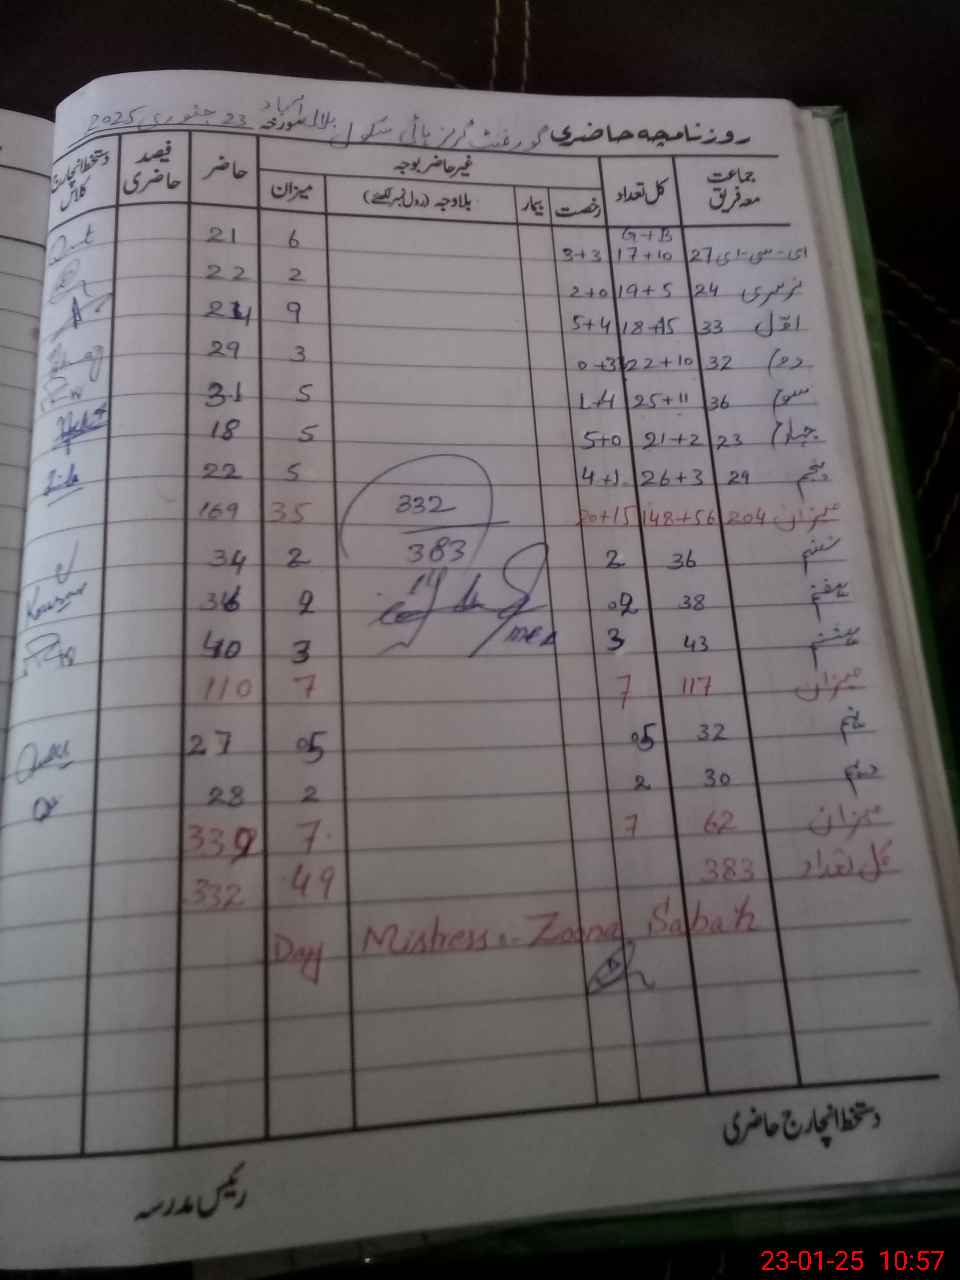 روزنامچہ حاضری گورنمنٹ گرلز ہائی سکول بلال آباد مورخہ 23 جنوری 2025
جماعت معہ فریق کل تعداد غیر حاضر بوجہ حاضر فیصد حاضری دستخط انچارج کلاس
رخصت بیمار بلاوجہ (رول نمبر لکھیئے) میزان
G+B
ای-سی-ای 27 17+10 3+3 6 21
نرسری 24 19+5 2+0 2 22
اول 33 18+15 5+4 9 24
دوم 32 22+10 0+3 3 29
سوم 36 25+11 1+4 5 31
چہارم 23 21+2 5+0 5 18
پنجم 29 26+3 4+1 5 22
میزان 204 148+56 20+15 35 169
332
383
ششم 36 2 2 34
ہفتم 38 02 2 36 Kousar
ہشتم 43 3 3 40
میزان 117 7 7 110
نہم 32 05 05 27
دہم 30 2 2 28
میزان 62 7 7
کل تعداد 383 49 332
Day Mistress :- Zoona Sabah
دستخط انچارج حاضری
رئیس مدرسہ
23-01-25 10:57